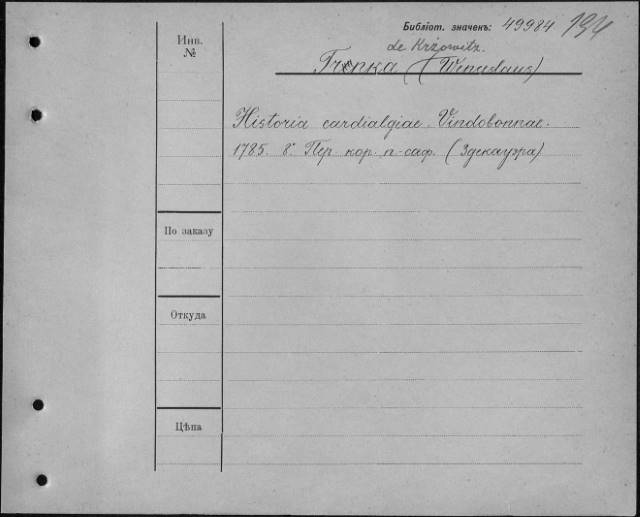 Библіот. значекъ: 49984 194
Инв.
№
de Kržowitz.
Trnka (Wenceslaus)
Historia cardialgiae. Vindobonnae.
1785. 8°. Пер. кор. п-саф. (Здекауэра)
По заказу
Откуда
Цѣна